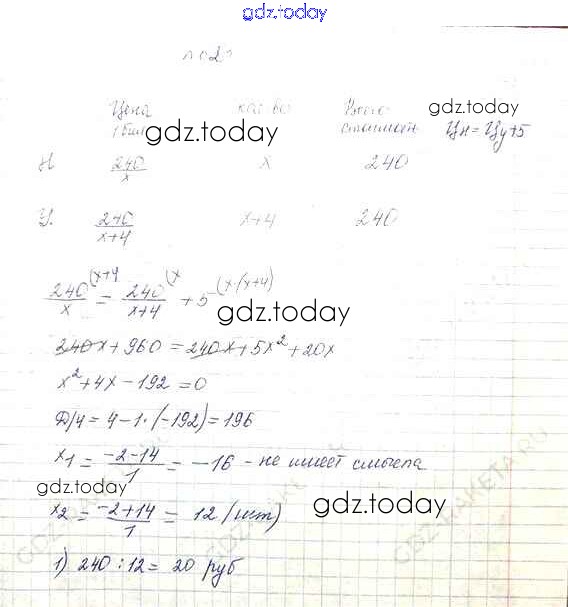 gdz.today
Цена кол-во Всего
1 бил стоимость Цн=Цу+5
gdz.today
gdz.today
Н 240/x x 240
У. 240/x+4 x+4 240
240/x (x+4 = 240/x+4 (x + 5 (x·(x+4)
gdz.today
240x+960=240x+5x²+20x
x²+4x-192=0
Д/4=4-1·(-192)=196
x₁=-2-14/1=-16 - не имеет смысла
gdz.today
gdz.today
x₂=-2+14/1=12 (шт)
1) 240:12=20 руб
GDZ-RAKETA.RU